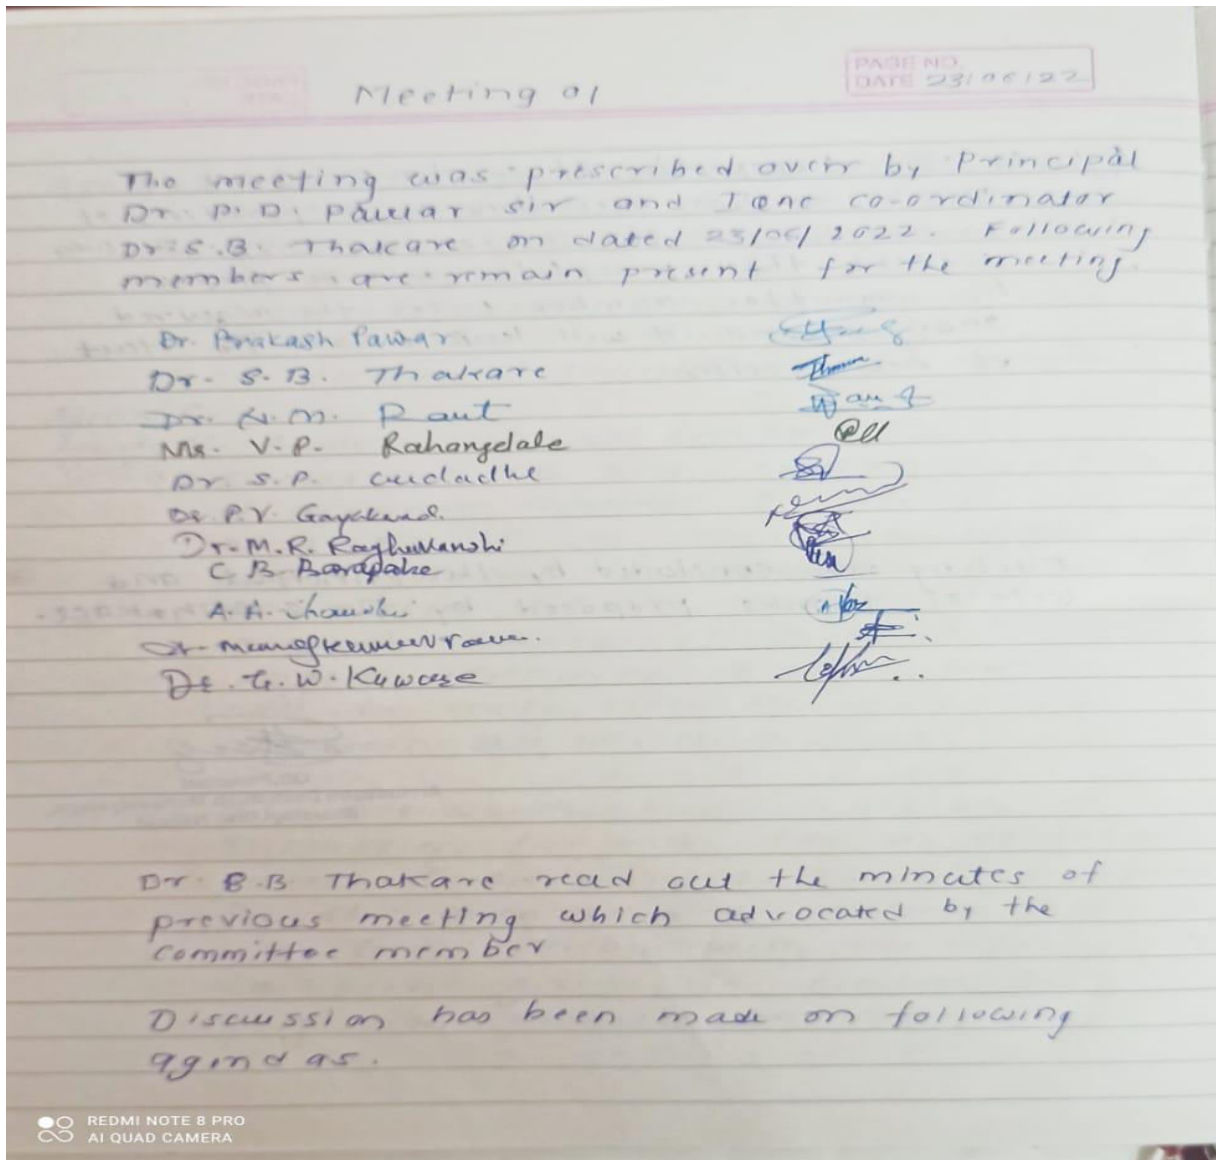 PAGE NO.
DATE 23/06/22
Meeting 01
The meeting was prescribed over by Principal
Dr. P. D. Pawar sir and Iqac co-ordinator
Dr. S.B. Thakare on dated 23/06/2022. Following
members are remain present for the meeting.
Dr. Prakash Pawar
Dr. S. B. Thakare
Dr. N. M. Raut
Ms. V. P. Rahangdale
Dr. S. P.
Dr. P. V. Gayakwad.
Dr. M. R. Raghuwanshi
C. B. Barapake
A. A.
Dr.
Dr. G. W.
Dr S.B Thakare read out the minutes of
previous meeting which advocated by the
committee member
Discussion has been made on following
agindas.
REDMI NOTE 8 PRO
AI QUAD CAMERA